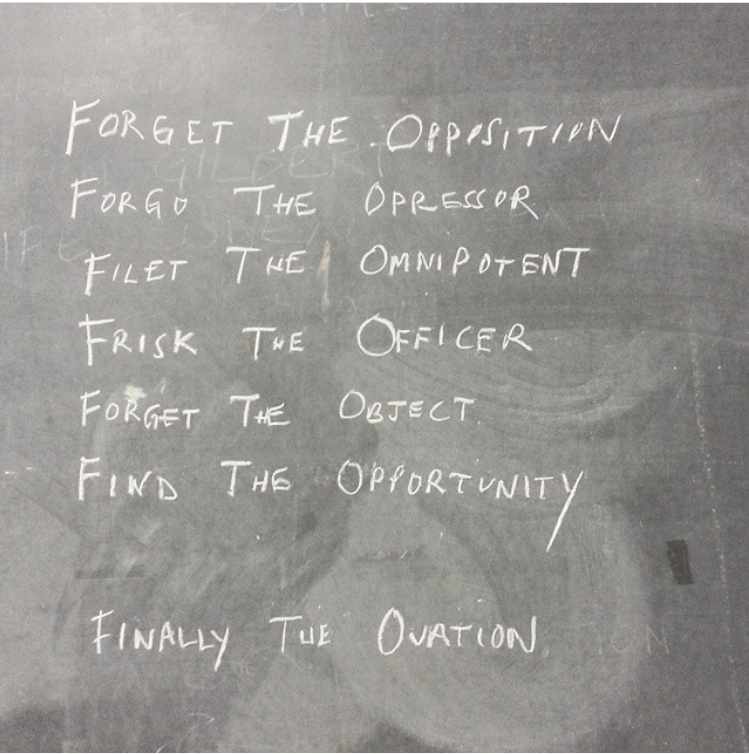 FORGET THE OPPOSITION
FORGO THE OPRESSOR
FILET THE OMNIPOTENT
FRISK THE OFFICER
FORGET THE OBJECT
FIND THE OPPORTUNITY
FINALLY THE OVATION